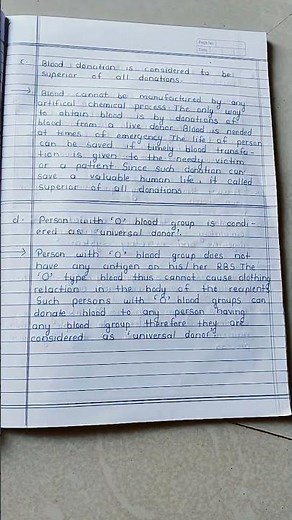 Page No.
Date
c Blood donation is considered to be
superior of all donations.
→ Blood cannot be manufactured by any
artifical chemical process. The only way
to obtain blood is by donations of
blood from a live donor. Blood is needed
at times of emergency The life of person
can be saved if timely blood transfa-
tion is given to the needy victim
or a patient Since such donation can
save a valuable human life, it called
superior of all donations
d. Person with 'O' blood group is condi-
ered as 'universal donor'.
→ Person with 'O' blood group does not
have any antigen on his/her RBS The
'O' type blood thus cannot cause clothing
relaction in the body of the recipients
Such persons with 'O' blood groups can
donate blood to any person having
any blood group therefore they are
considered as 'universal donor'.